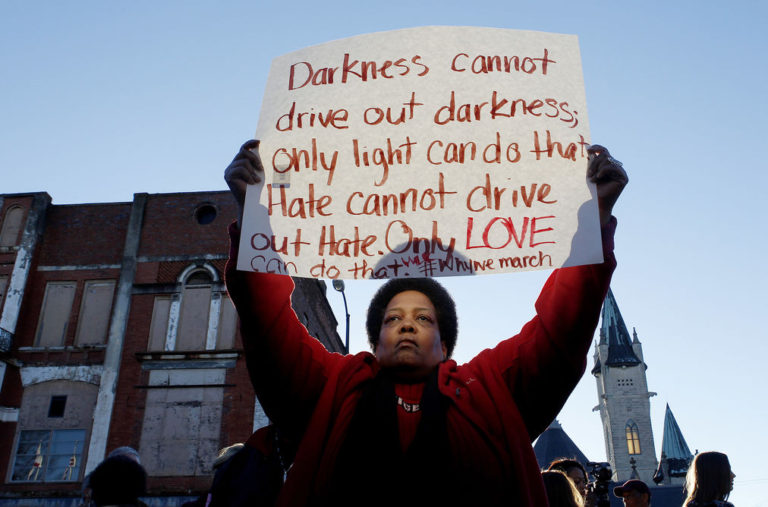 Darkness cannot
drive out darkness;
only light can do that
Hate cannot drive
out Hate. Only LOVE
can do that! #Whywe march